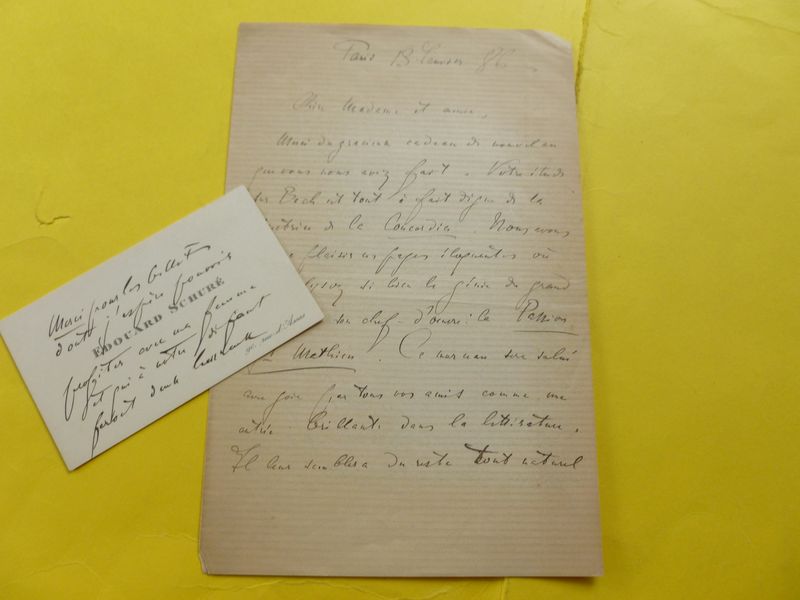 Paris 13 Janvier 86
Chère Madame et amie,
Merci du gracieux cadeau de nouvel an
que vous nous avez fait. Votre étude
sur Bach est tout à fait digne de la
directrice de la Concordia. Nous avons
plaisir ces pages éloquentes où
si bien le génie du grand
son chef-d'œuvre: la Passion
Mathieu. Ce morceau sera salué
avec joie par tous vos amis comme une
entrée brillante dans la littérature.
Il leur semblera du reste tout naturel
Merci pour les billets
dont j'espère pouvoir
EDOUARD SCHURÉ
profiter avec ma femme
90, rue d'Assas
et qui à votre défaut
feront d'une